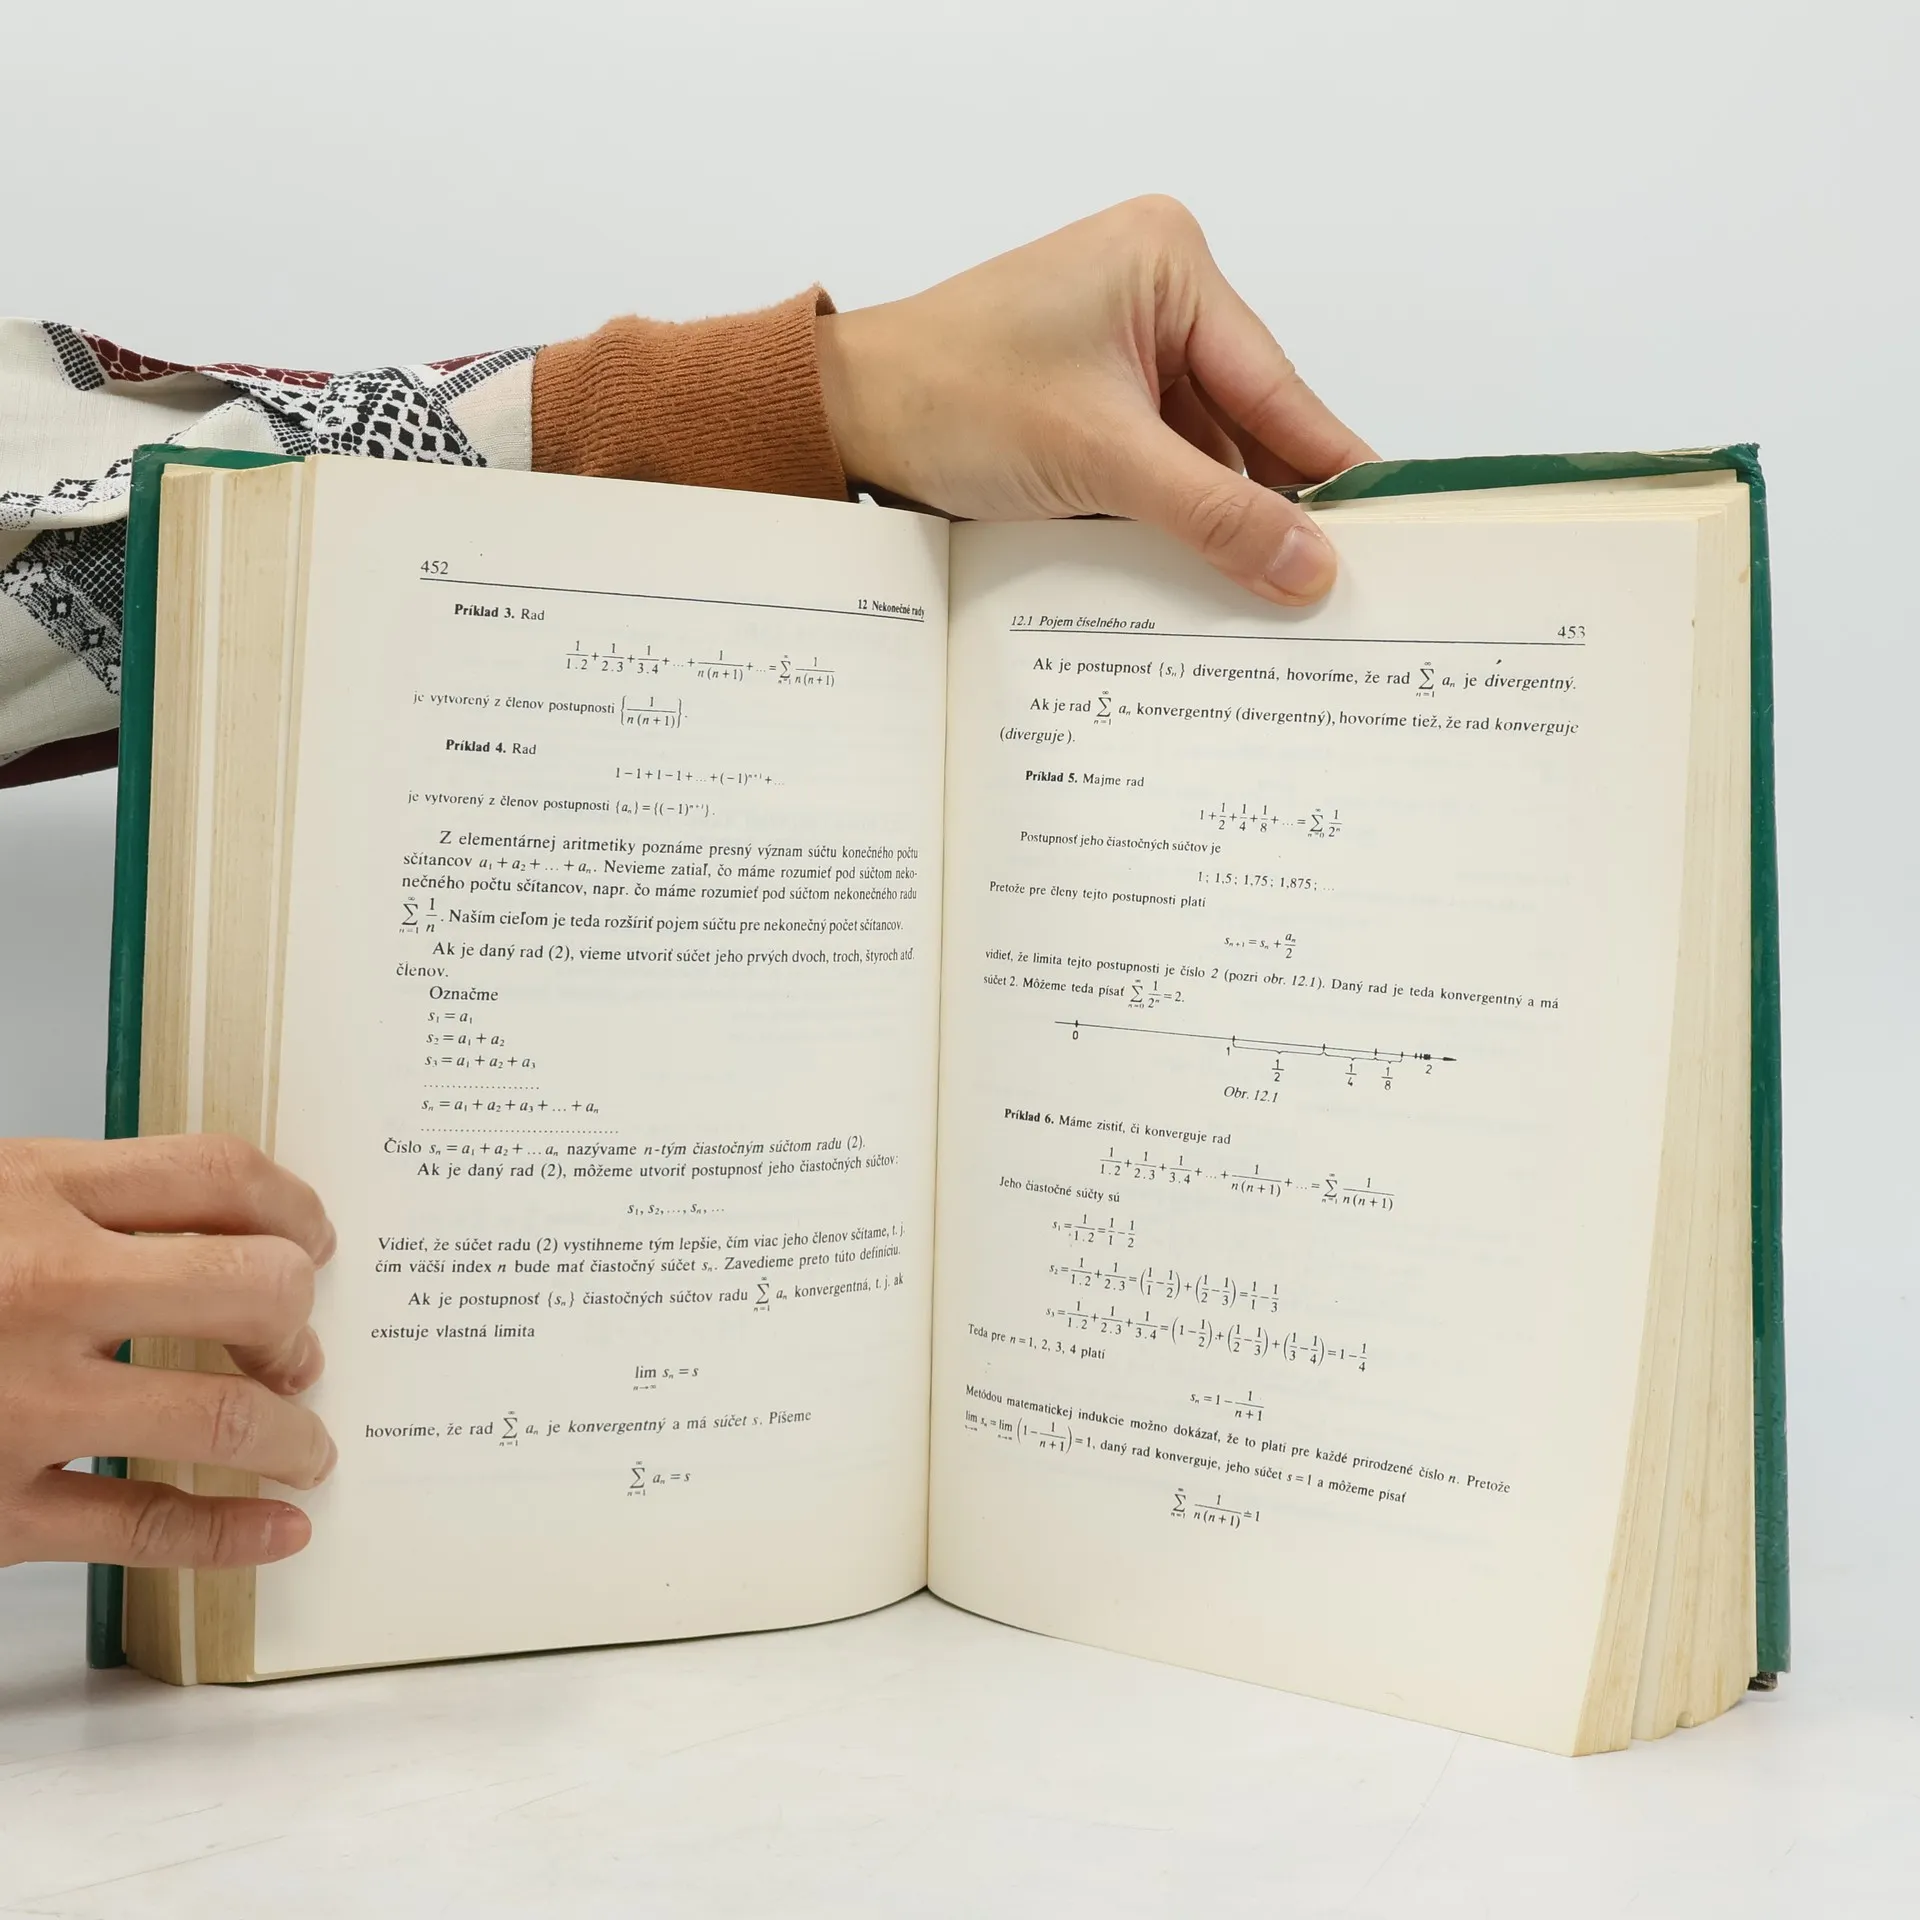 452
12 Nekonečné rady
Príklad 3. Rad
1/1.2 + 1/2.3 + 1/3.4 + ... + 1/n(n+1) + ... = ∑_{n=1}^{∞} 1/n(n+1)
je vytvorený z členov postupnosti {1/n(n+1)}.
Príklad 4. Rad
1 − 1 + 1 − 1 + ... + (−1)ⁿ⁺¹ + ...
je vytvorený z členov postupnosti {aₙ} = {(−1)ⁿ⁺¹}.
Z elementárnej aritmetiky poznáme presný význam súčtu konečného počtu
sčítancov a₁ + a₂ + ... + aₙ. Nevieme zatiaľ, čo máme rozumieť pod súčtom neko-
nečného počtu sčítancov, napr. čo máme rozumieť pod súčtom nekonečného radu
∑_{n=1}^{∞} 1/n. Naším cieľom je teda rozšíriť pojem súčtu pre nekonečný počet sčítancov.
Ak je daný rad (2), vieme utvoriť súčet jeho prvých dvoch, troch, štyroch atď.
členov.
Označme
s₁ = a₁
s₂ = a₁ + a₂
s₃ = a₁ + a₂ + a₃
.....................
sₙ = a₁ + a₂ + a₃ + ... + aₙ
...................................
Číslo sₙ = a₁ + a₂ + ... aₙ nazývame n-tým čiastočným súčtom radu (2).
Ak je daný rad (2), môžeme utvoriť postupnosť jeho čiastočných súčtov:
s₁, s₂, ..., sₙ, ...
Vidieť, že súčet radu (2) vystihneme tým lepšie, čím viac jeho členov sčítame, t. j.
čím väčší index n bude mať čiastočný súčet sₙ. Zavedieme preto túto definíciu.
Ak je postupnosť {sₙ} čiastočných súčtov radu ∑_{n=1}^{∞} aₙ konvergentná, t. j. ak
existuje vlastná limita
lim_{n→∞} sₙ = s
hovoríme, že rad ∑_{n=1}^{∞} aₙ je konvergentný a má súčet s. Píšeme
∑_{n=1}^{∞} aₙ = s
12.1 Pojem číselného radu
453
Ak je postupnosť {sₙ} divergentná, hovoríme, že rad ∑_{n=1}^{∞} aₙ je divergentný.
Ak je rad ∑_{n=1}^{∞} aₙ konvergentný (divergentný), hovoríme tiež, že rad konverguje
(diverguje).
Príklad 5. Majme rad
1 + 1/2 + 1/4 + 1/8 + ... = ∑_{n=0}^{∞} 1/2ⁿ
Postupnosť jeho čiastočných súčtov je
1; 1,5; 1,75; 1,875; ...
Pretože pre členy tejto postupnosti platí
sₙ₊₁ = sₙ + aₙ/2
vidieť, že limita tejto postupnosti je číslo 2 (pozri obr. 12.1). Daný rad je teda konvergentný a má
súčet 2. Môžeme teda písať ∑_{n=0}^{∞} 1/2ⁿ = 2.
0 1 1/2 1/4 1/8 2
Obr. 12.1
Príklad 6. Máme zistiť, či konverguje rad
1/1.2 + 1/2.3 + 1/3.4 + ... + 1/n(n+1) + ... = ∑_{n=1}^{∞} 1/n(n+1)
Jeho čiastočné súčty sú
s₁ = 1/1.2 = 1/1 − 1/2
s₂ = 1/1.2 + 1/2.3 = (1/1 − 1/2) + (1/2 − 1/3) = 1/1 − 1/3
s₃ = 1/1.2 + 1/2.3 + 1/3.4 = (1 − 1/2) + (1/2 − 1/3) + (1/3 − 1/4) = 1 − 1/4
Teda pre n = 1, 2, 3, 4 platí
sₙ = 1 − 1/n+1
Metódou matematickej indukcie možno dokázať, že to platí pre každé prirodzené číslo n. Pretože
lim_{n→∞} sₙ = lim_{n→∞} (1 − 1/n+1) = 1, daný rad konverguje, jeho súčet s = 1 a môžeme písať
∑_{n=1}^{∞} 1/n(n+1) = 1